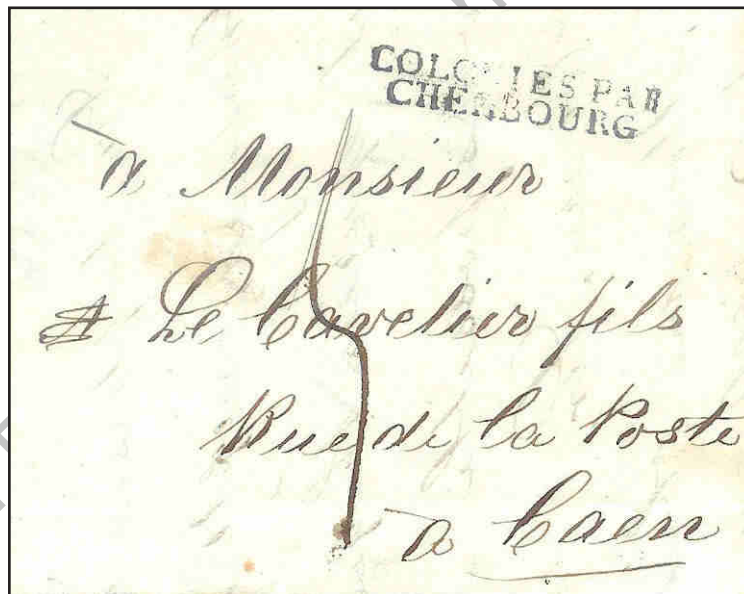 COLONIES PAR
CHERBOURG
à Monsieur
Le Cavelier fils
Rue de la Poste
à Caen